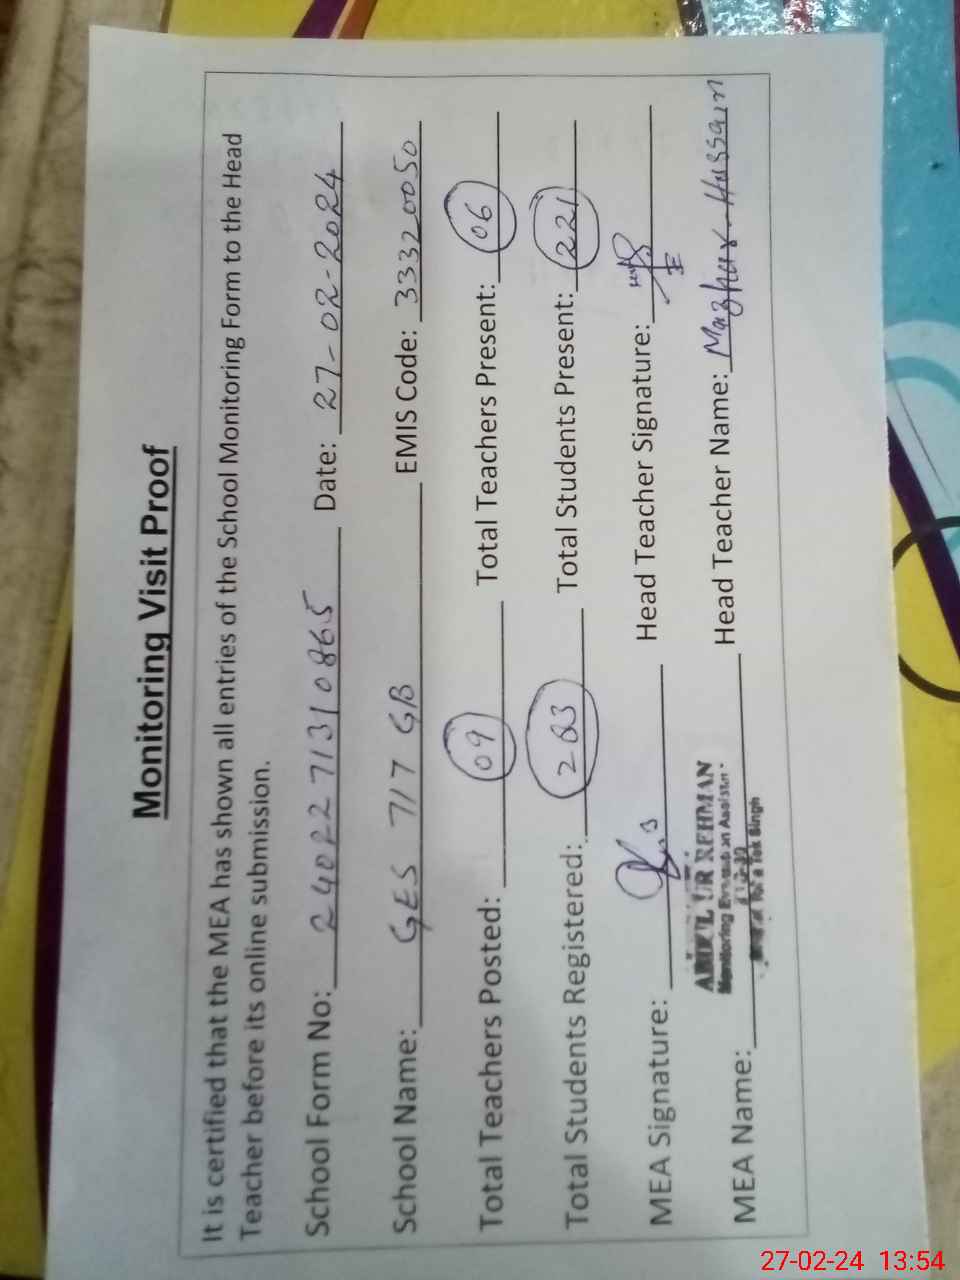 Monitoring Visit Proof
It is certified that the MEA has shown all entries of the School Monitoring Form to the Head
Teacher before its online submission.
School Form No: 24022771310865 Date: 27-02-2024
School Name: GES 717 GB EMIS Code: 33320050
Total Teachers Posted: 09 Total Teachers Present: 06
Total Students Registered: 283 Total Students Present: 221
MEA Signature: Head Teacher Signature:
UR REHMAN
Monitoring
Tek Singh
MEA Name: Head Teacher Name: Mazhar Hussain
27-02-24 13:54